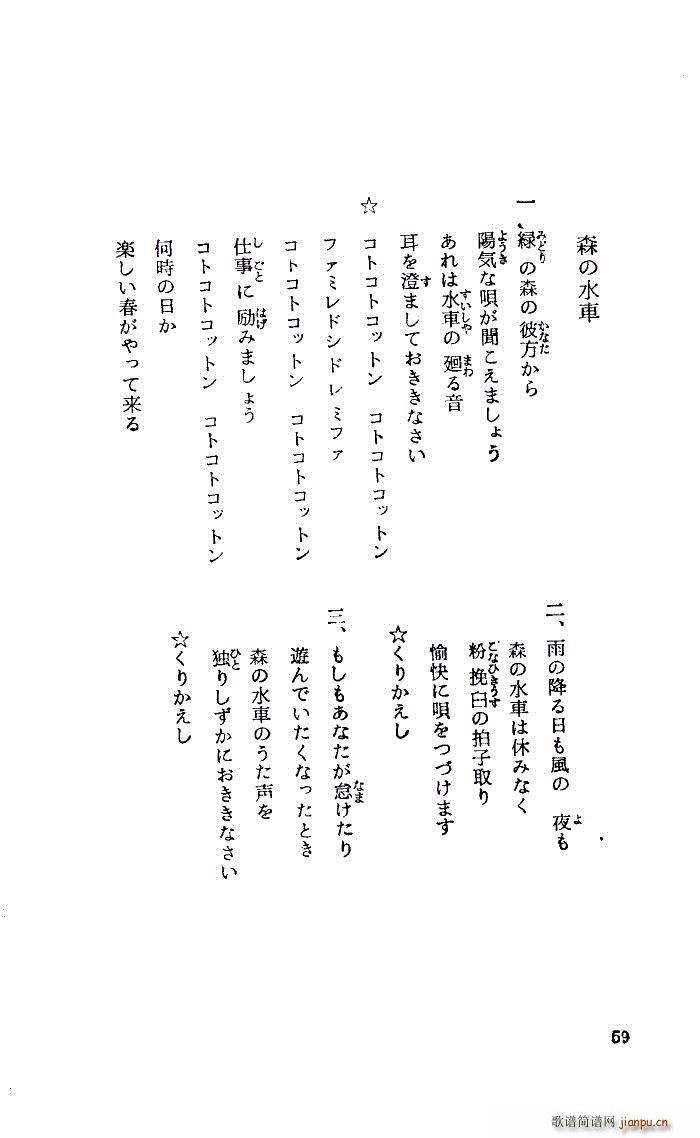 森の水車
一、緑の森の彼方から
陽気な唄が聞こえましょう
あれは水車の廻る音
耳を澄ましておききなさい
☆ コトコトコットン コトコトコットン
ファミレドシドレミファ
コトコトコットン コトコトコットン
仕事に励みましょう
コトコトコットン コトコトコットン
何時の日か
楽しい春がやって来る
二、雨の降る日も風の夜も
森の水車は休みなく
粉挽臼の拍子取り
愉快に唄をつづけます
☆くりかえし
三、もしもあなたが怠けたり
遊んでいたくなったとき
森の水車のうた声を
独りしずかにおききなさい
☆くりかえし
59
歌谱简谱网 jianpu.cn